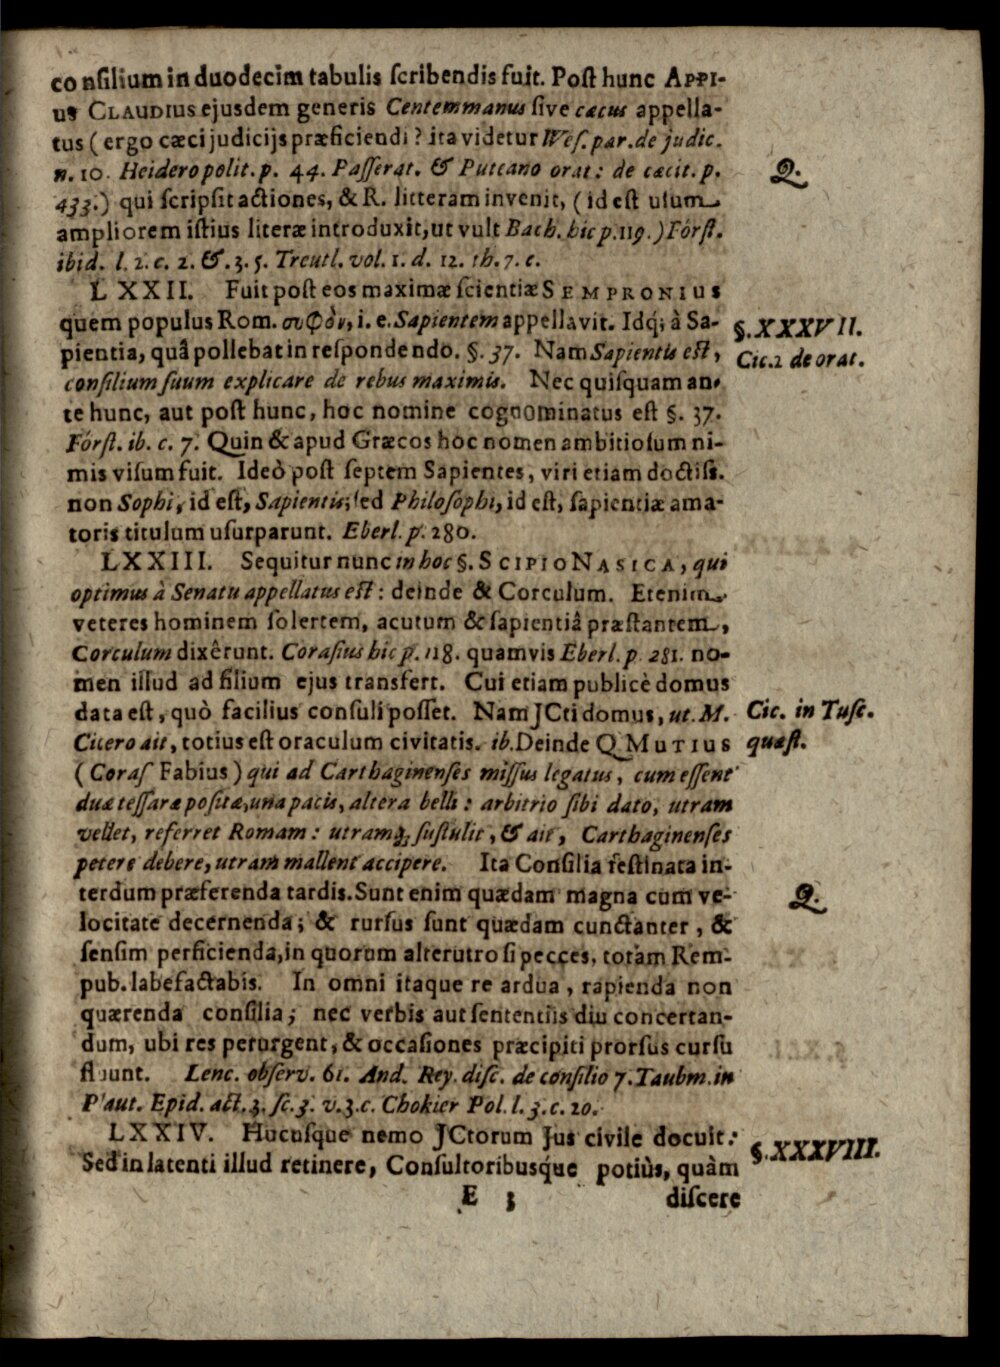 consilium in duodecim tabulis scribendis fuit. Post hunc APPI-
us CLAUDIUS ejusdem generis Centemmanus sive cæcus appella-
tus (ergo cæci judicijs præficiendi? ita videtur Wes. par. de judic.
n. 10. Heidero polit. p. 44. Passerat. & Puteano orat: de cæcit. p.
Q.
433.) qui scripsit actiones, & R. litteram invenit, (id est usum
ampliorem istius literæ introduxit, ut vult Bach. hic p. 119.) Förſt.
ibid. l. 2. c. 2. &. 3. 5. Treutl. vol. 1. d. 12. th. 7. e.
LXXII. Fuit post eos maximæ scientiæ SEMPRONIUS
quem populus Rom. σοφὸν, i. e. Sapientem appellavit. Idq; à Sa-
§. XXXVII.
pientia, quâ pollebat in respondendo. §. 37. Nam Sapientis est,
Cic. 2 de orat.
consilium suum explicare de rebus maximis. Nec quisquam an-
te hunc, aut post hunc, hoc nomine cognominatus est §. 37.
Förſt. ib. c. 7. Quin & apud Græcos hoc nomen ambitiosum ni-
mis visum fuit. Ideò post septem Sapientes, viri etiam doctiss.
non Sophi, id est, Sapientis, sed Philosophi, id est, sapientiæ ama-
toris titulum usurparunt. Eberl. p. 280.
LXXIII. Sequitur nunc in hoc §. SCIPIO NASICA, qui
optimus à Senatu appellatus est: deinde & Corculum. Etenim
veteres hominem solertem, acutum & sapientiâ præstantem,
Corculum dixêrunt. Corasius hic p. 118. quamvis Eberl. p. 281. no-
men illud ad filium ejus transfert. Cui etiam publicè domus
data est, quò facilius consuli posset. Nam JCti domus, ut. M.
Cic. in Tusc.
Cicero ait, totius est oraculum civitatis. ib. Deinde Q. MUTIUS
quæst.
(Coraſ Fabius) qui ad Carthaginenses missus legatus, cum essent
duæ tessaræ positæ, una pacis, altera belli: arbitrio sibi dato, utram
vellet, referret Romam: utramq; sustulit, & ait, Carthaginenses
petere debere, utram mallent accipere. Ita Consilia festinata in-
terdum præferenda tardis. Sunt enim quædam magna cum ve-
Q.
locitate decernenda; & rursus sunt quædam cunctanter, &
sensim perficienda, in quorum alterutro si pecces, totam Rem-
pub. labefactabis. In omni itaque re ardua, rapienda non
quærenda consilia; nec verbis aut sententiis diu concertan-
dum, ubi res perurgent, & occasiones præcipiti prorsus cursu
fluunt. Lenc. observ. 61. And. Rey. disc. de consilio 7. Taubm. in
Plaut. Epid. act. 3. sc. 3. v. 3. c. Chokier Pol. l. 3. c. 20.
LXXIV. Hucusque nemo JCtorum Jus civile docuit:
§. XXXVIII.
Sed in latenti illud retinere, Consultoribusque potiùs, quàm
E 3 discere